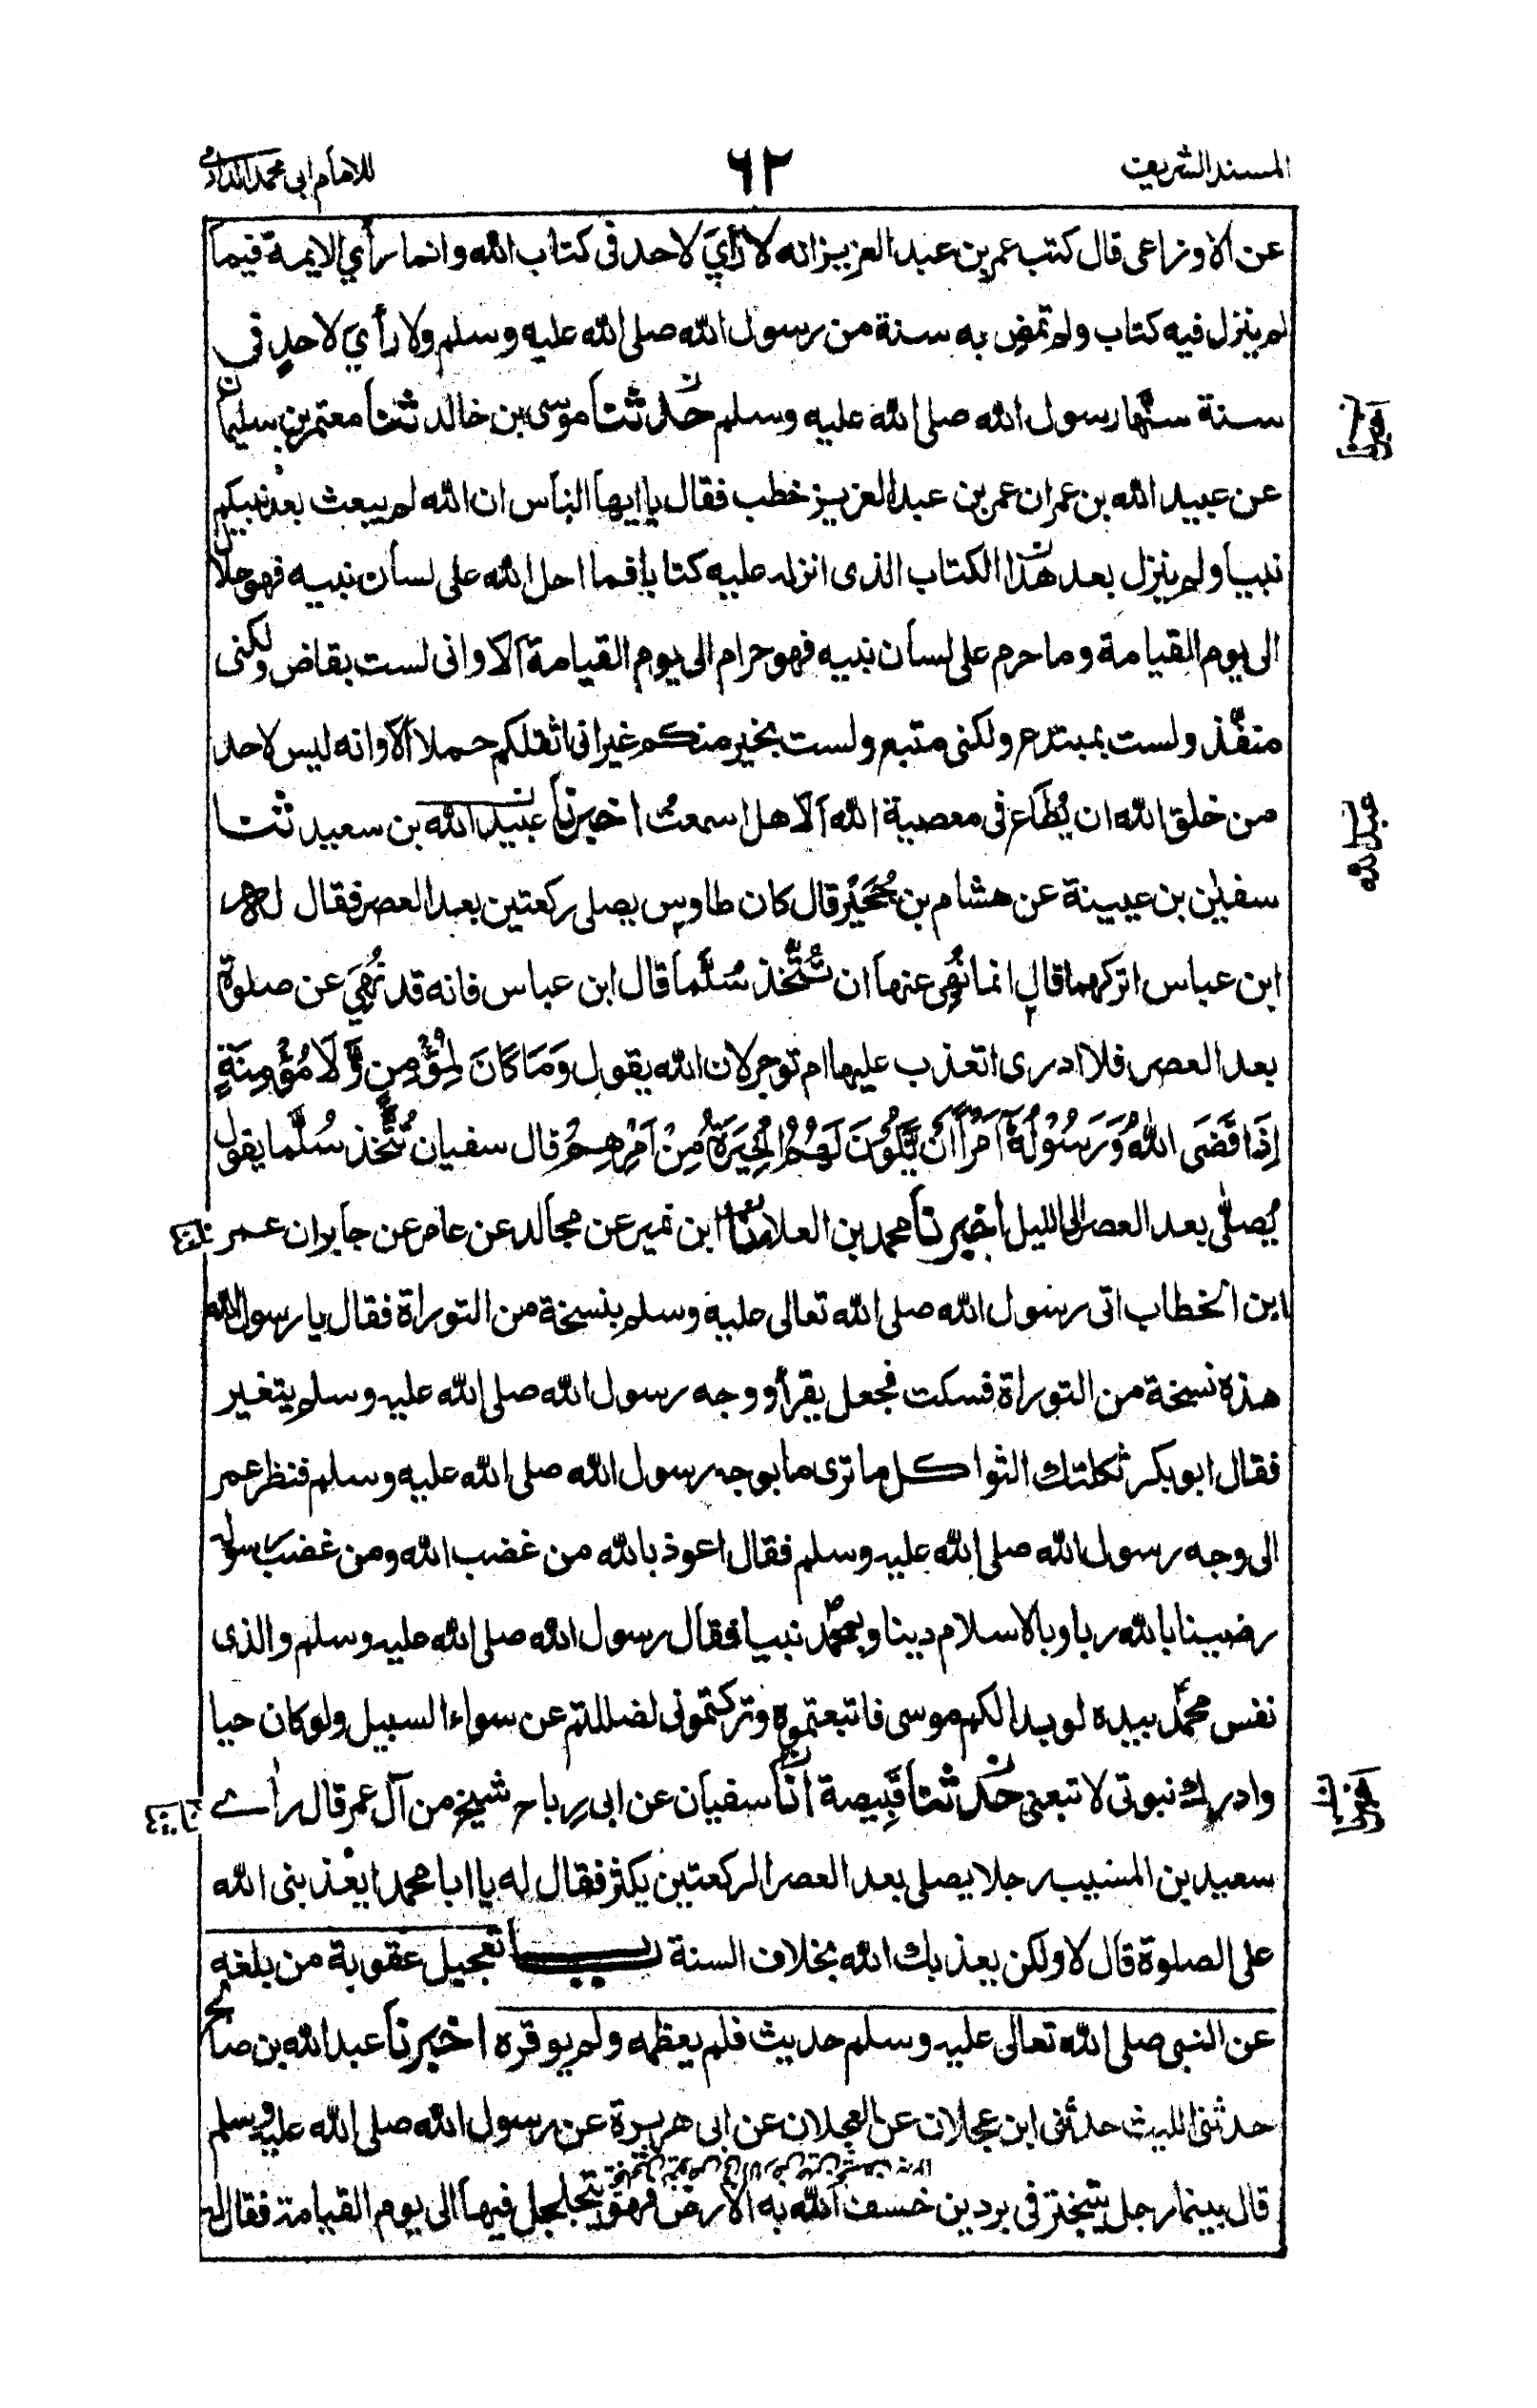 المسند الشريف
٦٢
للامام ابى محمد الدارمى
عن الاوزاعى قال كتب عمر بن عبد العزيز انه لا رأيَ لاحد فى كتاب الله وانما رأي الايمة فيما
لم ينزل فيه كتاب ولم تمض به سنة من رسول الله صلى الله عليه وسلم ولا رأيَ لاحدٍ فى
سنة سنّها رسول الله صلى الله عليه وسلم حدثنا موسى بن خالد ثنا معتمر بن سليمان
عن عبيد الله بن عمر ان عمر بن عبد العزيز خطب فقال يا ايها الناس ان الله لم يبعث بعد نبيكم
نبيا ولم ينزل بعد هذا الكتاب الذى انزله عليه كتابا فما احل الله على لسان نبيه فهو حلال
الى يوم القيامة وما حرم على لسان نبيه فهو حرام الى يوم القيامة الا وانى لست بقاض ولكنى
منفّذ ولست بمبتدع ولكنى متبع ولست بخير منكم غير انى اثقلكم حملا الا وانه ليس لاحد
من خلق الله ان يُطاع فى معصية الله الا هل اسمعتُ اخبرنا عبيد الله بن سعيد ثنا
سفيٰن بن عيينة عن هشام بن حُجَيْر قال كان طاوس يصلى ركعتين بعد العصر فقال له
ابن عباس اتركهما قال انما نُهِىَ عنها ان تُتَّخذ سُلَّما قال ابن عباس فانه قد نُهِيَ عن صلوة
بعد العصر فلا ادرى اتعذب عليها ام توجر لان الله يقول وَمَا كَانَ لِمُؤْمِنٍ وَّلَا مُؤْمِنَةٍ
اِذَا قَضَى اللهُ وَرَسُوْلُهٗ اَمْرًا اَنْ يَّكُوْنَ لَهُمُ الْخِيَرَةُ مِنْ اَمْرِهِمْ قال سفيان تُتَّخذ سُلَّما يقول
يُصلّى بعد العصر الى الليل اخبرنا محمد بن العلاء ثنا ابن نمير عن مجالد عن عامر عن جابر ان عمر
ابن الخطاب اتى رسول الله صلى الله تعالى عليه وسلم بنسخة من التوراة فقال يا رسول الله
هذه نسخة من التوراة فسكت فجعل يقرأ ووجه رسول الله صلى الله عليه وسلم يتغير
فقال ابو بكر ثكلتك الثواكل ما ترى ما بوجه رسول الله صلى الله عليه وسلم فنظر عمر
الى وجه رسول الله صلى الله عليه وسلم فقال اعوذ بالله من غضب الله ومن غضب رسوله
رضينا بالله ربا وبالاسلام دينا وبمحمد نبيا فقال رسول الله صلى الله عليه وسلم والذى
نفس محمد بيده لو بدا لكم موسى فاتبعتموه وتركتمونى لضللتم عن سواء السبيل ولو كان حيا
وادرك نبوتى لاتبعنى حدثنا قَبِيصة انا سفيان عن ابى رِباح شيخ من آل عمر قال رأى
سعيد بن المسيب رجلا يصلى بعد العصر الركعتين يكثر فقال له يا ابا محمد ايعذبنى الله
على الصلوة قال لا ولكن يعذبك الله بخلاف السنة باب تعجيل عقوبة من بلغه
عن النبى صلى الله تعالى عليه وسلم حديث فلم يعظمه ولم يوقره اخبرنا عبد الله بن صالح
حدثنى الليث حدثنى ابن عجلان عن العجلان عن ابى هريرة عن رسول الله صلى الله عليه وسلم
قال بينما رجل يتبختر فى بردين خسف الله به الارض فهو يتجلجل فيها الى يوم القيامة فقال له